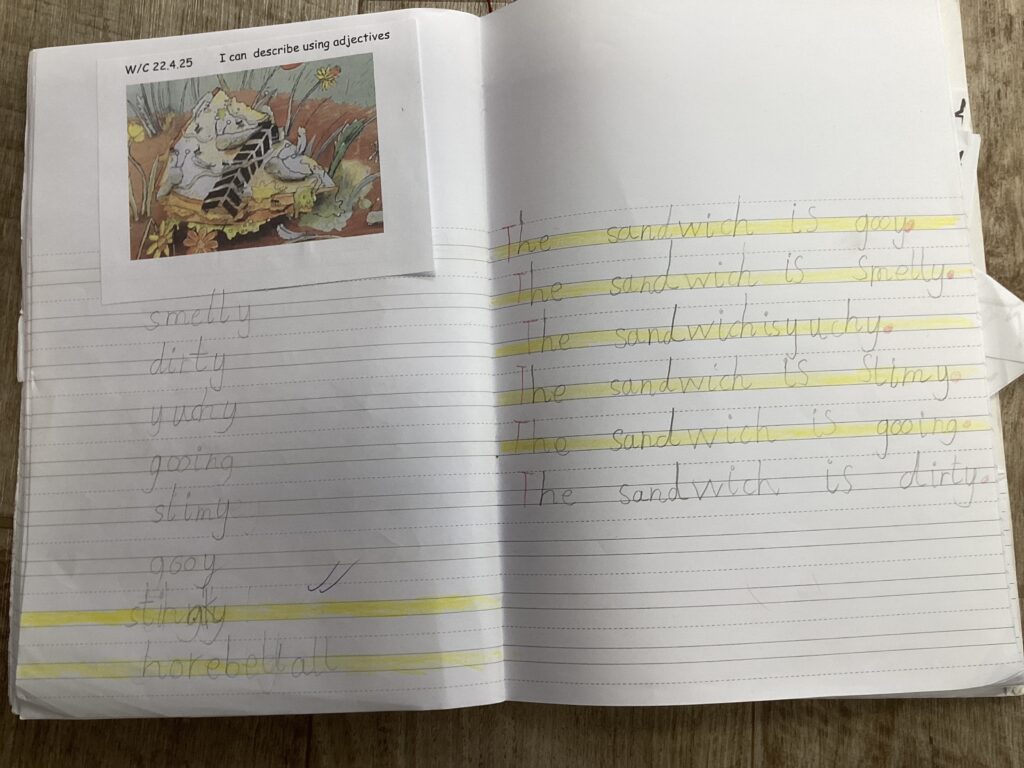 W/C 22.4.25 I can describe using adjectives
smelly
dirty
yuchy
gooing
slimy
gooy
horebellall
The sandwich is gooy.
The sandwich is smelly.
The sandwich is yuchy.
The sandwich is slimy.
The sandwich is gooing.
The sandwich is dirty.